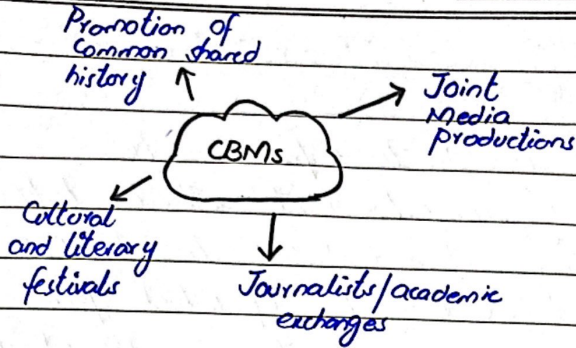 Promotion of
Common shared
history
Joint
Media
Productions
CBMs
Cultural
and literary
festivals
Journalists/academic
exchanges